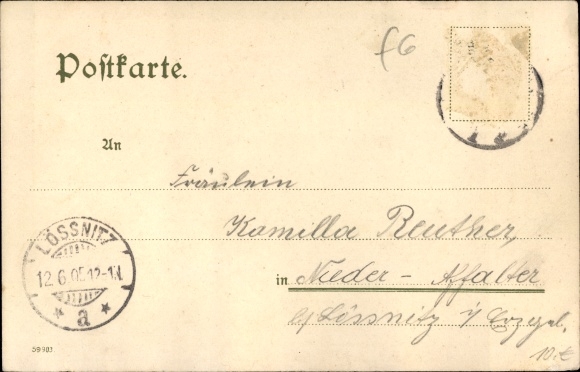 f6
Postkarte.
An
Fräulein
Kamilla Reuther,
in Nieder-Affalter
b/Lössnitz i/ Erzgeb.
LÖSSNITZ
12.6.05.12-1N.
* a *
59983
10.€